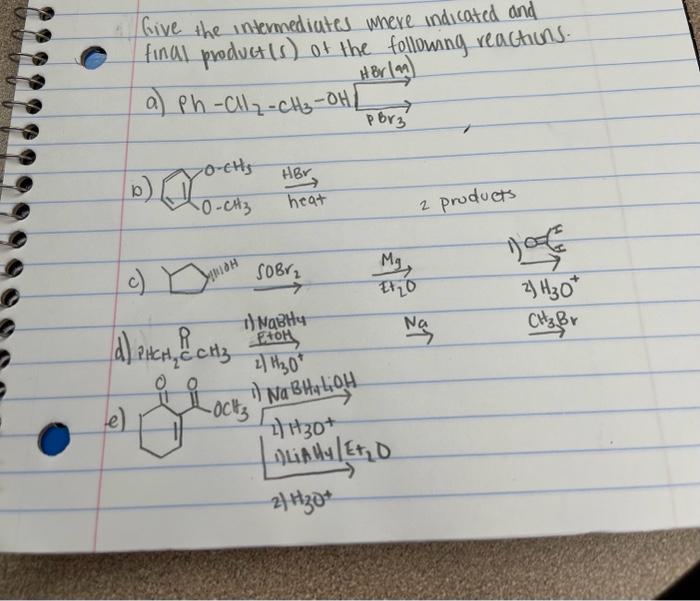 Give the intermediates where indicated and
final product(s) of the following reactions.
a) Ph-CH2-CH3-OH HBr(aq)
PBr3
b) O-CH3 HBr
O-CH3 heat 2 products
c) OH SOBr2 Mg Et2O 1) O=C H H
2) H3O+
d) PhCH2CCH3 1) NaBH4 EtOH Na CH3Br
2) H3O+
e) O O OCH3 1) NaBH4 LiOH
2) H3O+
1) LiAlH4/Et2O
2) H3O+